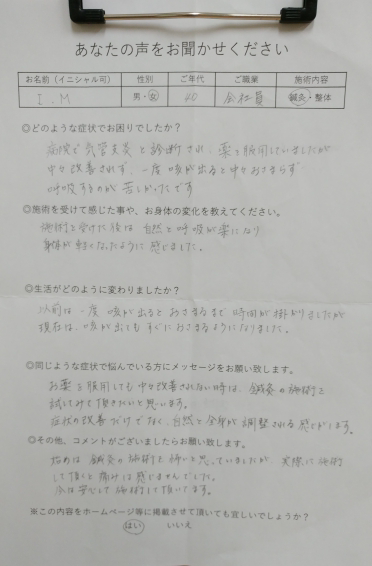 あなたの声をお聞かせください
お名前（イニシャル可） 性別 ご年代 ご職業 施術内容
I.M 男・女 40 会社員 鍼灸・整体
◎どのような症状でお困りでしたか？
病院で気管支炎と診断され、薬を服用していましたが
中々改善されず、一度咳が出ると中々おさまらず
呼吸するのが苦しかったです
◎施術を受けて感じた事や、お身体の変化を教えてください。
施術を受けた後は自然と呼吸が楽になり
身体が軽くなったように感じました。
◎生活がどのように変わりましたか？
以前は一度咳が出るとおさまるまで時間が掛かりましたが
現在は、咳が出てもすぐにおさまるようになりました。
◎同じような症状で悩んでいる方にメッセージをお願い致します。
お薬を服用しても中々改善されない時は、鍼灸の施術を
試してみて頂きたいと思います。
症状の改善だけでなく、自然と全身が調整される感じがします。
◎その他、コメントがございましたらお願い致します。
始めは鍼灸の施術を怖いと思っていましたが、実際に施術
して頂くと痛みは感じませんでした。
今は安心して施術して頂いてます。
※この内容をホームページ等に掲載させて頂いても宜しいでしょうか？
はい いいえ